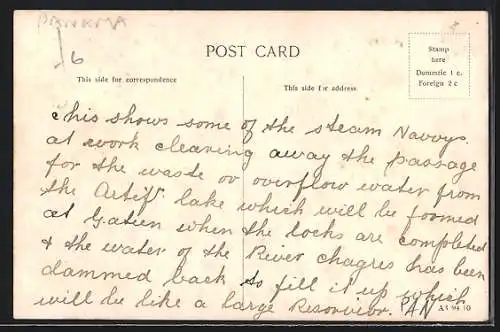 PANAMA
/6
POST CARD
Stamp
here
Domenzle 1 c.
Foreign 2 c
This side for correspondence
This side for address
This shows some of the steam Navvys
at work clearing away the passage
for the waste or overflow water from
the Artif. lake which will be formed
at Gatien when the locks are completed
& the water of the River Chagres has been
dammed back so fill it up which
will be like a large Reservior.
PAN
A5 98 10